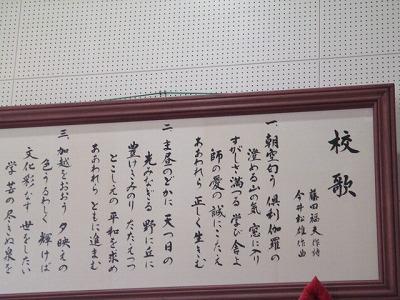 校歌
藤田福夫 作詩
今井松雄 作曲
一、朝空匂う 倶利伽羅の
澄める山の気 窓に入り
すがしさ満つる 学び舎よ
師の愛の誠にこたえ
あおわれら 正しく生きむ
二、主昼のどかに 天つ日の
光みなぎる 野に立に
豊けきみのり たたえつつ
とこしえの 平和を求め
あおわれら ともに進まむ
三、加越をおおう 夕映えの
色うるわしく 輝けば
文化彩なす 世をしたい
学芸の尽きぬ泉を